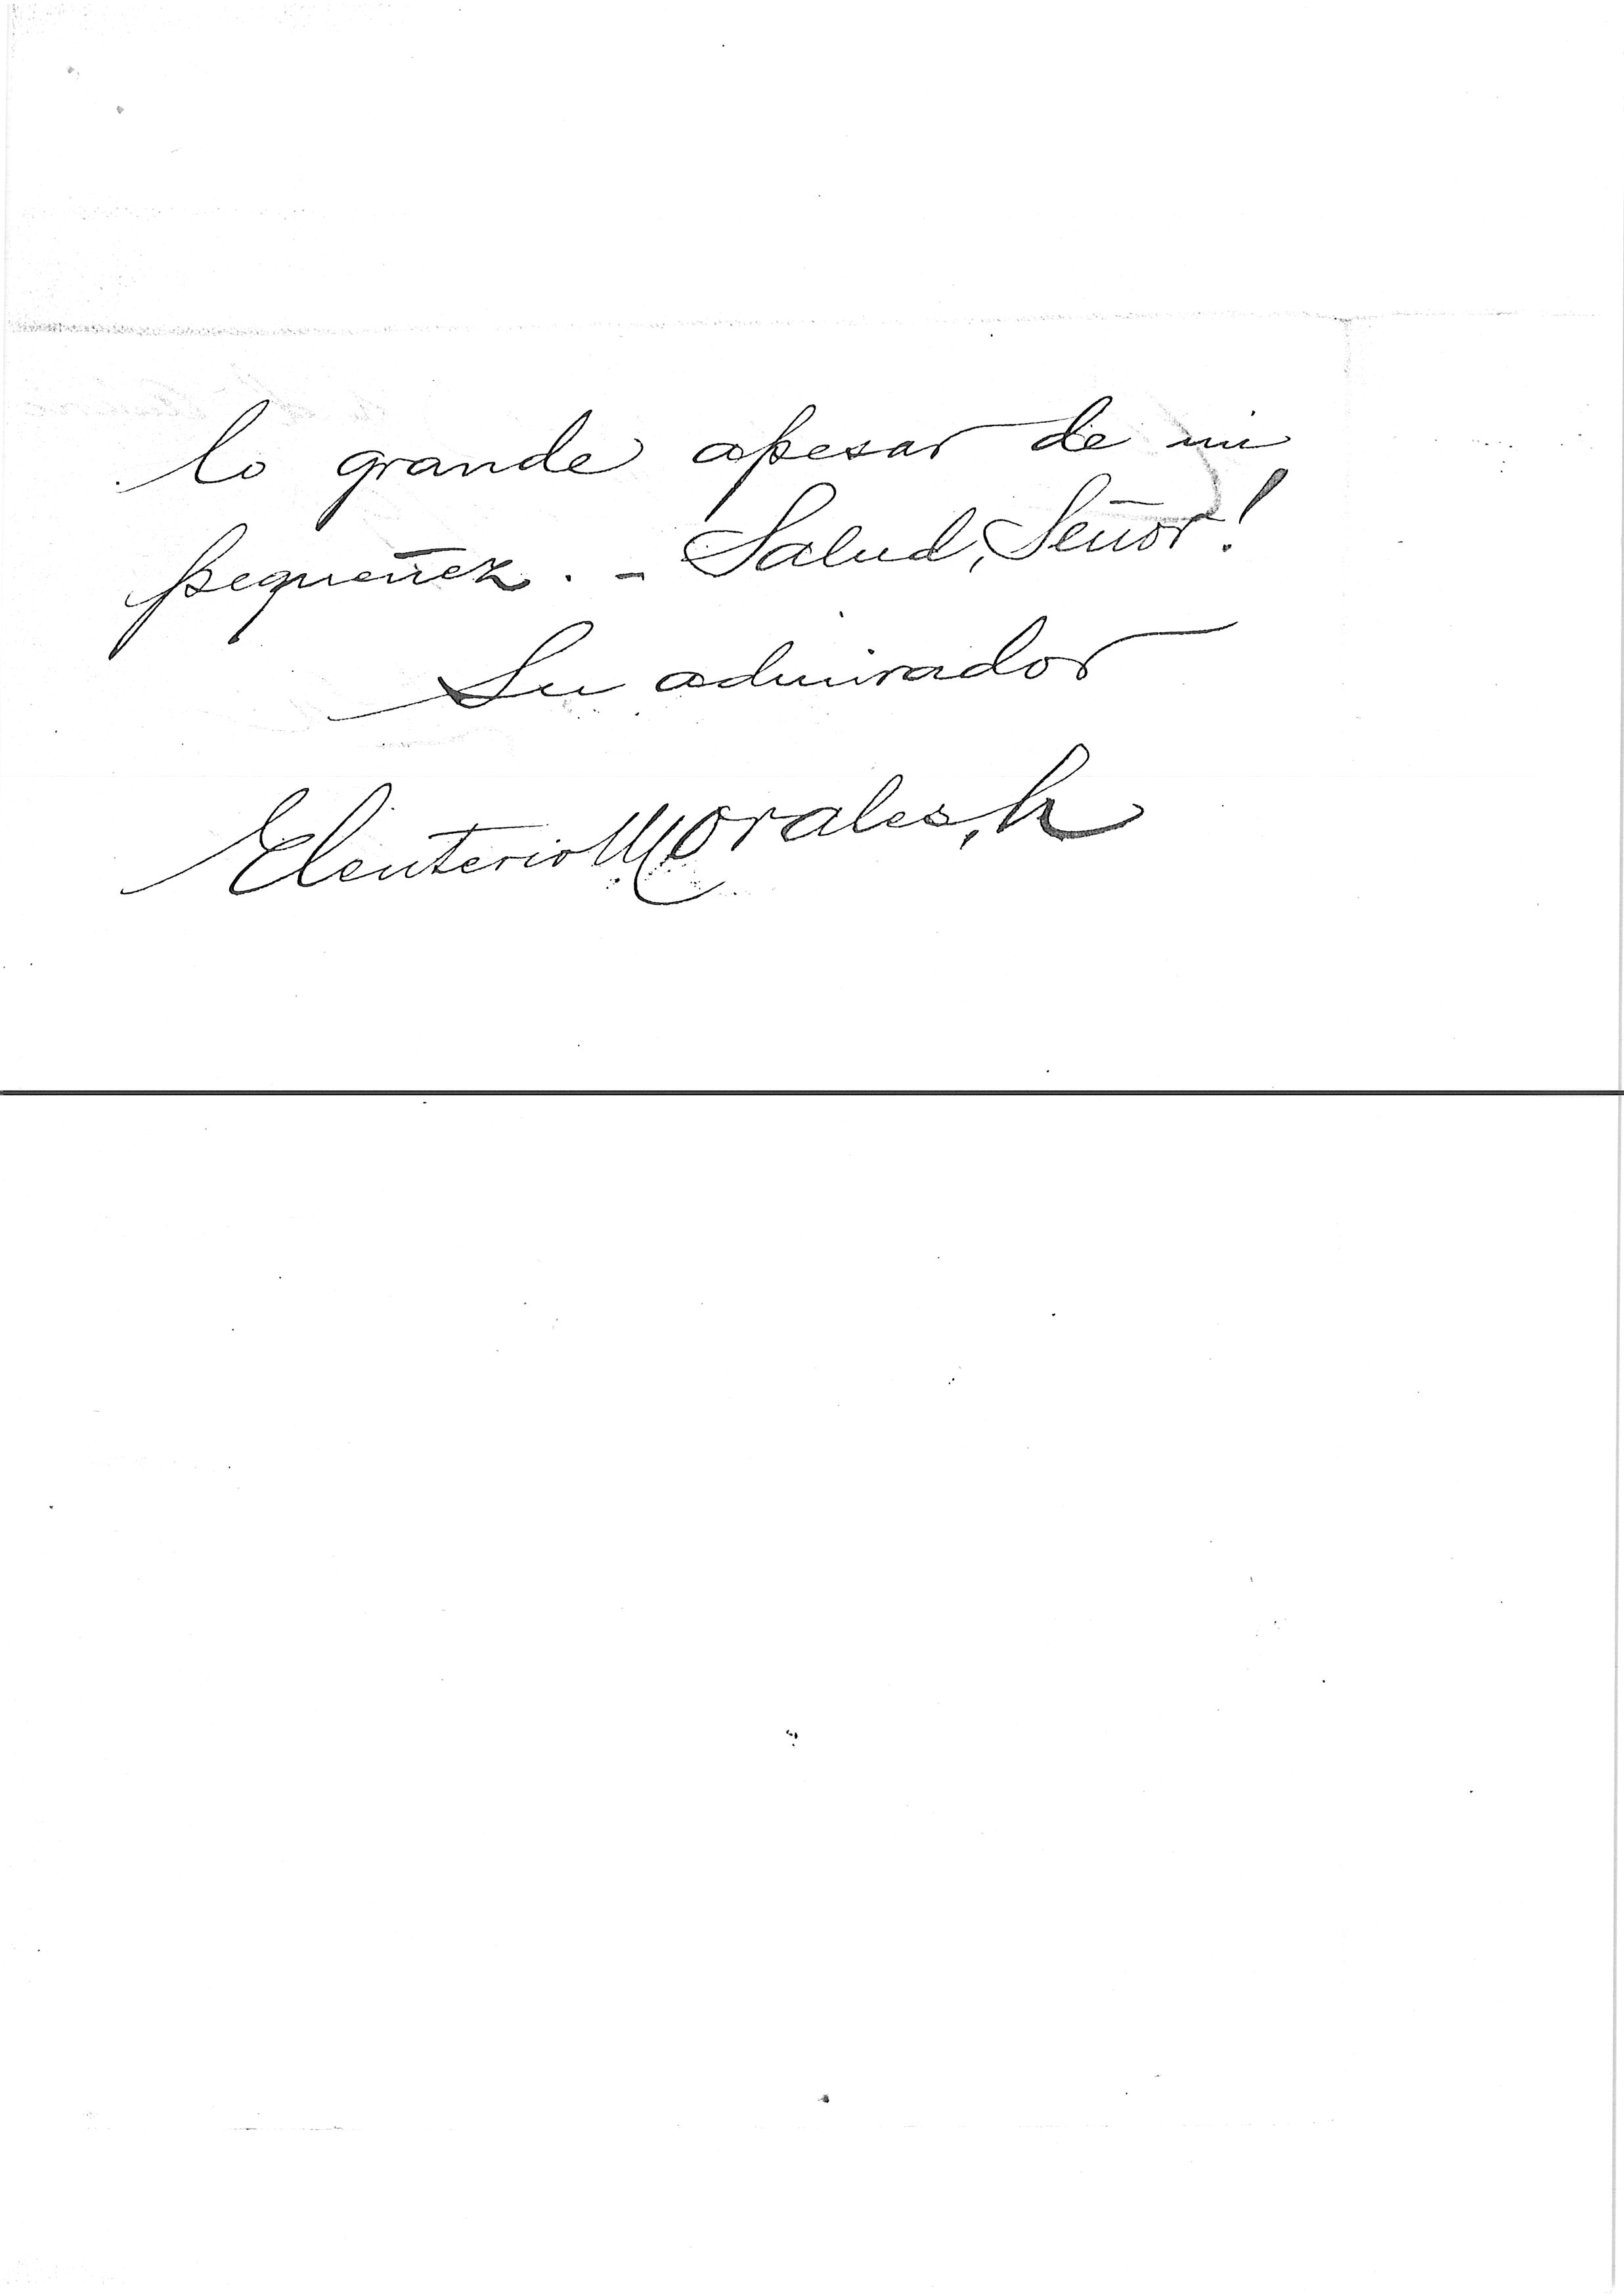 lo grande apesar de mi
pequeñez. - Salud, Señor!
Su admirador
Eleuterio Morales, h